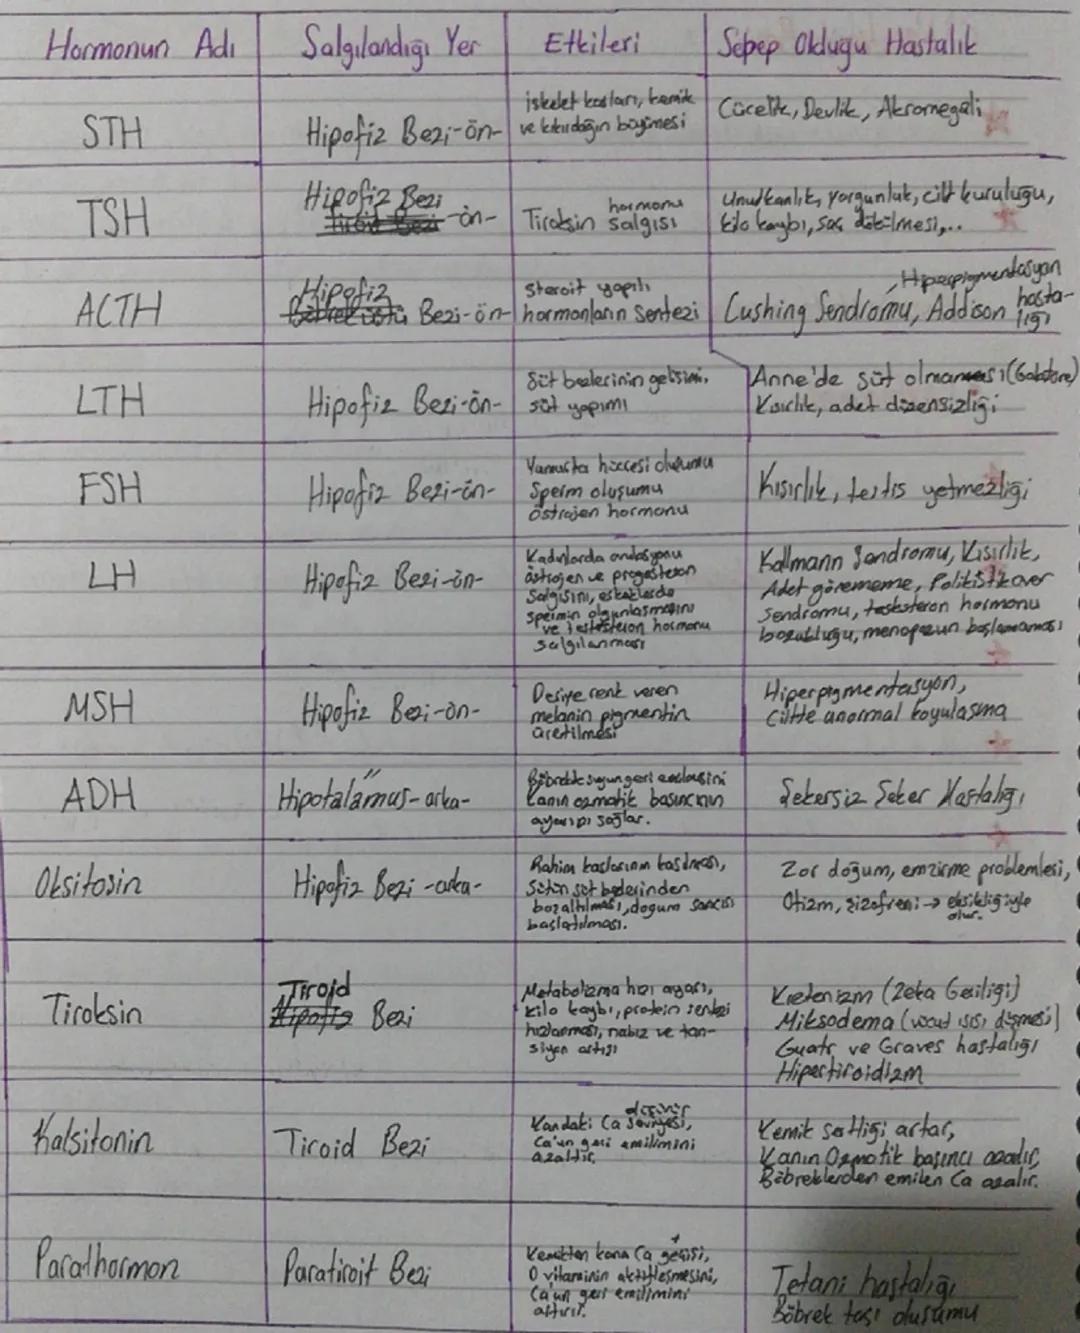 Hormonun Adı
Salgılandığı Yer
Etkileri
Sebep Olduğu Hastalık
STH
Hipofiz Bezi-ön-
İskelet kasları, kemik
ve kıkırdağın büyümesi
Cücelik, Devlik, Akromegali
TSH
Hipofiz Bezi
-ön-
Tiroksin hormonu
salgısı
Unutkanlık, yorgunluk, cilt kuruluğu,
kilo kaybı, saç dökülmesi,..
ACTH
Hipofiz
Bezi-ön-
Steroit yapılı
hormonların Sentezi
Hiperpigmentasyon
Cushing Sendromu, Addison hasta-
lığı
LTH
Hipofiz Bezi-ön-
Süt bezlerinin gelişimi,
süt yapımı
Anne'de süt olmaması
Kısırlık, adet düzensizliği
FSH
Hipofiz Bezi-ön-
Yumurta hücresi oluşumu
Sperm oluşumu
östrojen hormonu
Kısırlık, testis yetmezliği
LH
Hipofiz Bezi-ön-
Kadınlarda ovulasyonu
östrojen ve progesteron
Salgısını, erkeklerde
spermin olgunlaşmasını
ve testesteron hormonu
salgılanması
Kallmann Sendromu, Kısırlık,
Adet görememe, Polikistik over
Sendromu, testesteron hormonu
bozukluğu, menopozun başlamaması
MSH
Hipofiz Bezi-ön-
Deriye renk veren
melanin pigmentin
üretilmesi
Hiperpigmentasyon,
Ciltte anormal koyulaşma
ADH
Hipotalamus-arka-
Böbrekte suyun geri emilmesini
kanın ozmotik basıncının
ayarını sağlar.
Şekersiz Şeker Hastalığı
Oksitosin
Hipofiz Bezi -arka-
Rahim kaslarının kasılması,
Sütün süt bezlerinden
boşaltılması, doğum sancısı
başlatılması.
Zor doğum, emzirme problemlesi,
Otizm, şizofreni → eksikliğiyle
olur.
Tiroksin
Tiroid
Bezi
Metabolizma hızı ayarı,
kilo kaybı, protein sentezi
hızlanması, nabız ve tan-
siyon artışı
Kretenizm (Zeka Geriliği)
Miksodema (vücut ısısı düşmesi)
Guatr ve Graves hastalığı
Hipertiroidizm
Kalsitonin
Tiroid Bezi
düşürür
Kandaki Ca Seviyesi,
Ca'un geri emilimini
azaltır.
Kemik sertliği artar,
Kanın Ozmotik basıncı azalır,
Böbreklerden emilen Ca azalır.
Parathormon
Paratiroit Bezi
Kemikten kana Ca geçişi,
D vitaminin aktifleşmesini,
Ca'un geri emilimini
artırır.
Tetani hastalığı
Böbrek taşı oluşumu